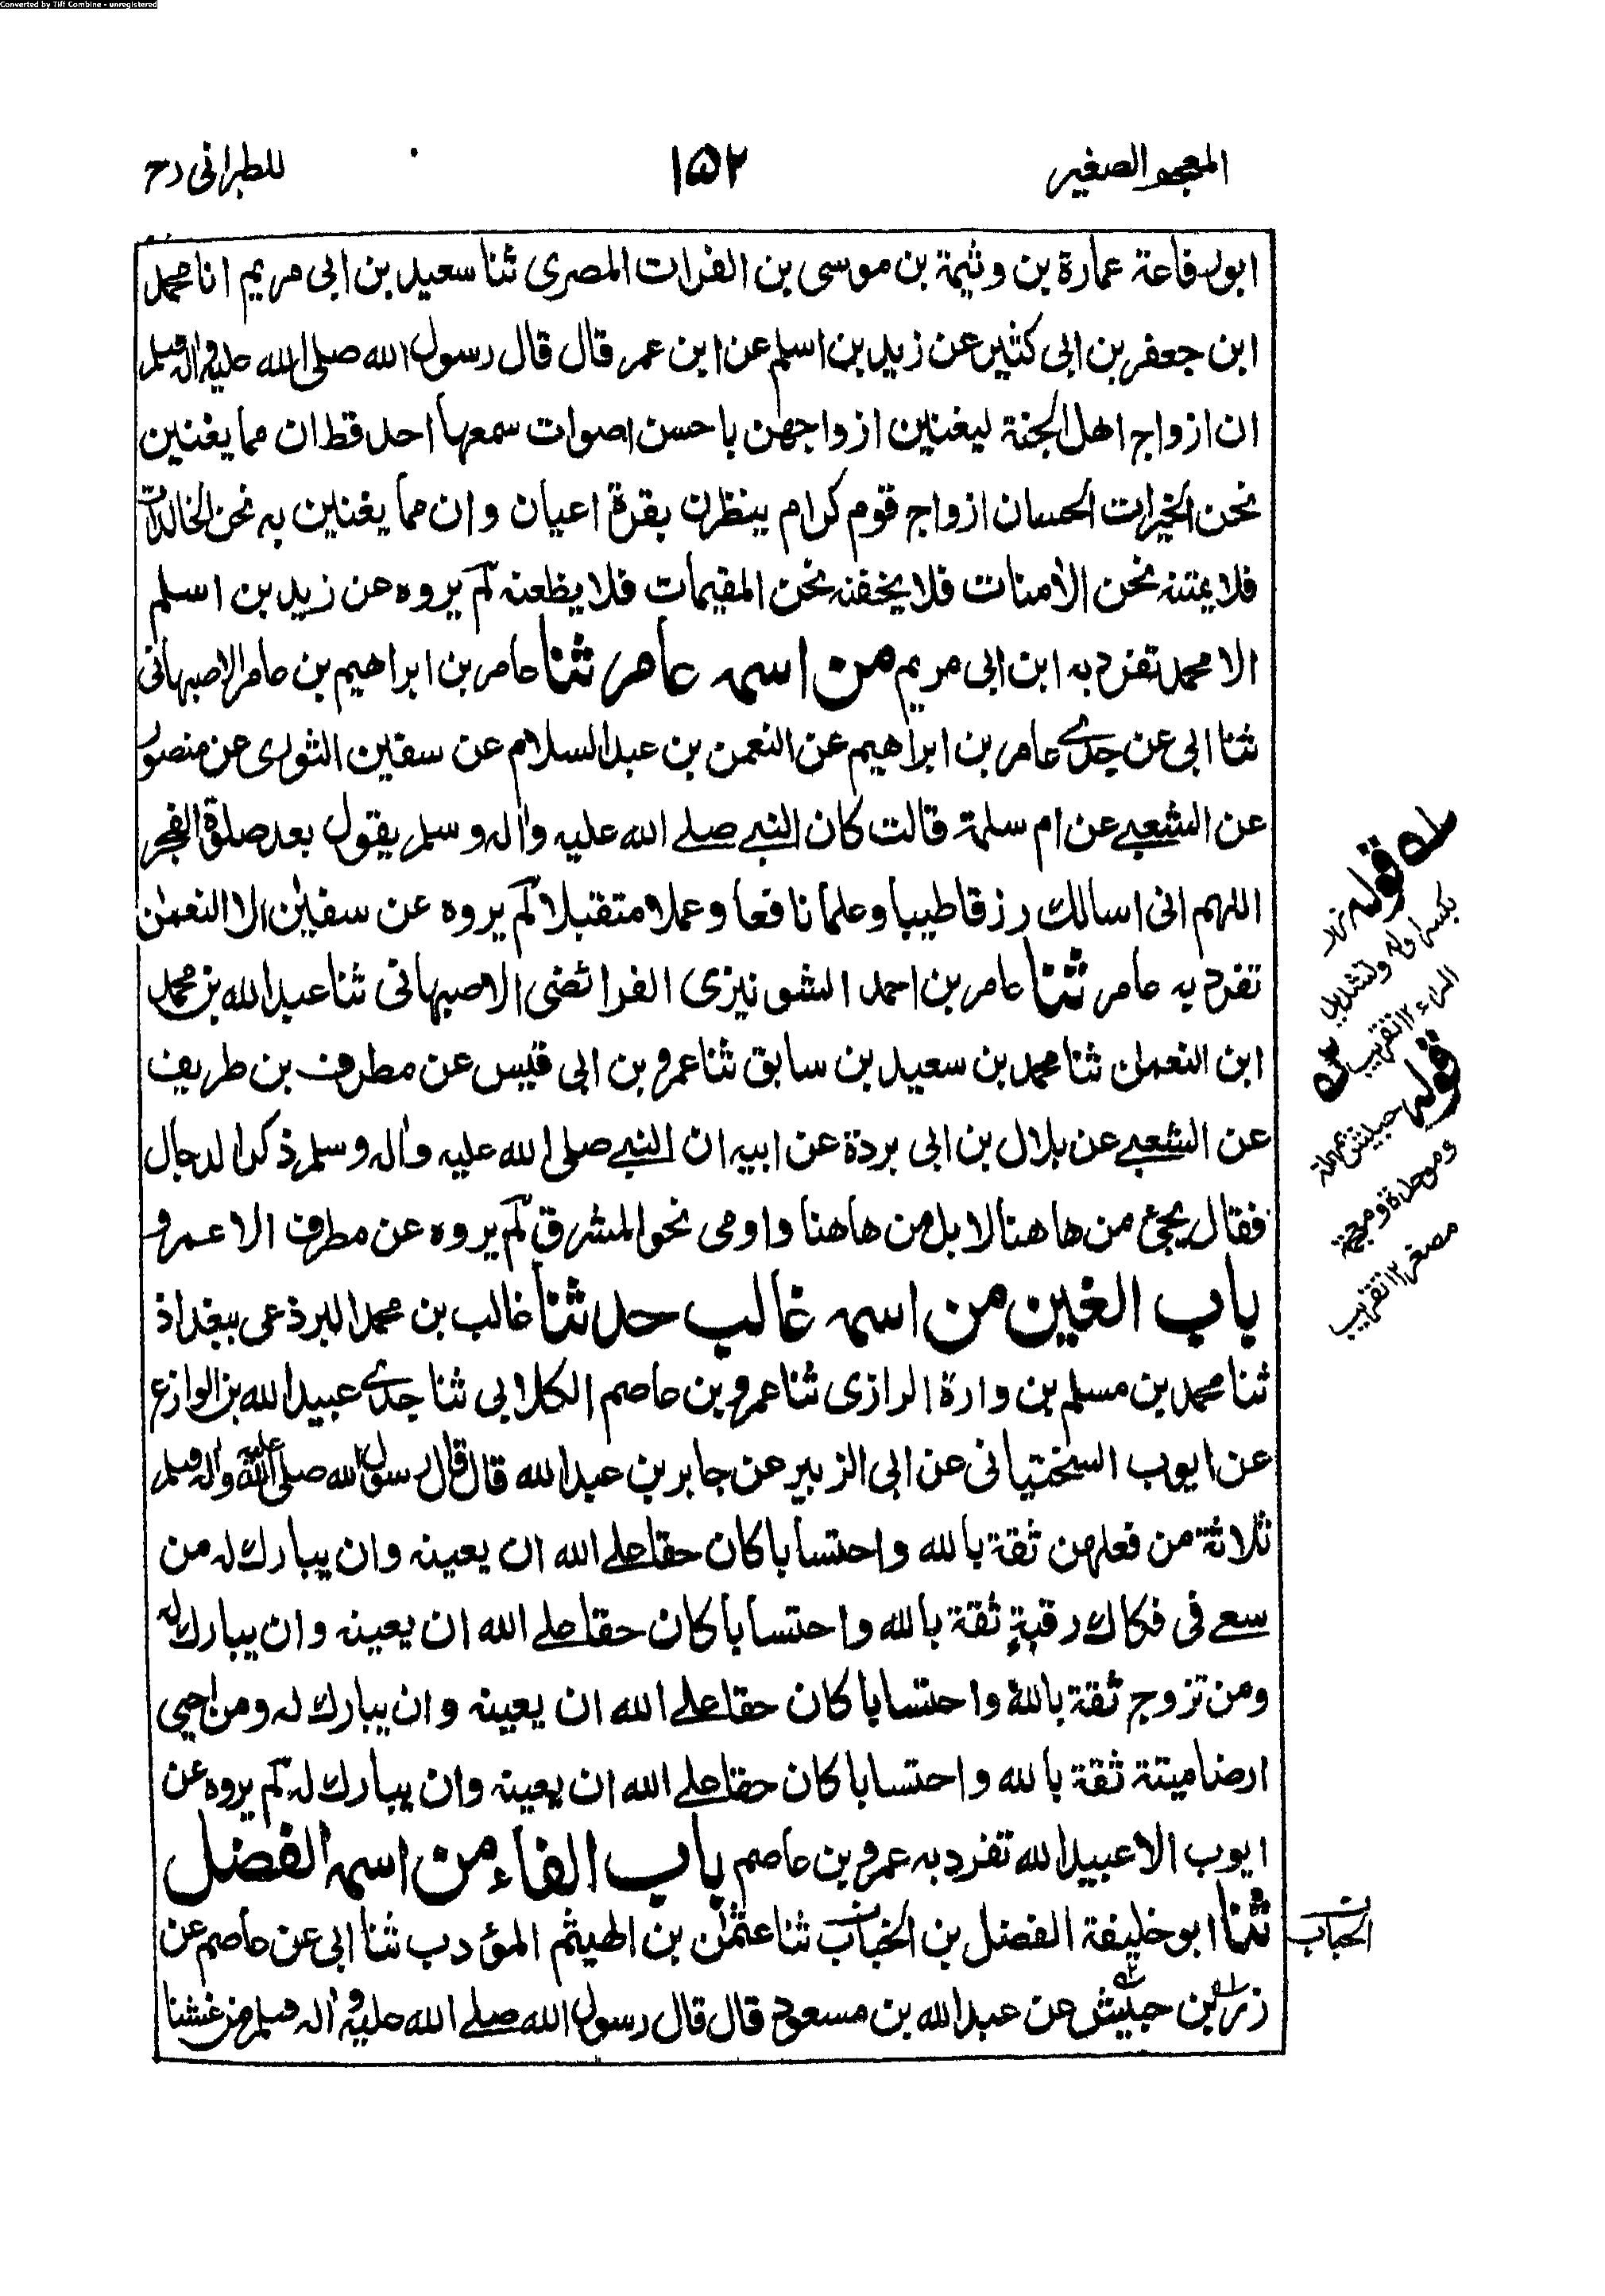 Converted by Tiff Combine - unregistered
المعجم الصغير
١٥٢
للطبرانی رح
ابورفاعة عمارة بن وثيمة بن موسى بن الفرات المصری ثنا سعيد بن ابی مريم انا محمد
ابن جعفر بن ابی كثير عن زيد بن اسلم عن ابن عمر قال قال رسول الله صلی الله عليه واله وسلم
ان ازواج اهل الجنة ليغنين ازواجهن باحسن اصوات سمعها احد قط ان مما يغنين
نحن الخيرات الحسان ازواج قوم كرام ينظرن بقرة اعيان وان مما يغنين به نحن الخالدات
فلا يمتنه نحن الامنات فلا يخفنه نحن المقيمات فلا يظعنه لم يروه عن زيد بن اسلم
الا محمد تفرد به ابن ابی مريم من اسمه عامر ثنا عامر بن ابراهيم بن عامر الاصبهانی
ثنا ابی عن جدے عامر بن ابراهيم عن النعمن بن عبد السلام عن سفين الثوری عن منصور
عن الشعبے عن ام سلمة قالت كان النبے صلے الله عليه واله وسلم يقول بعد صلوة الفجر
اللهم انی اسالك رزقا طيبا وعلما نافعا وعملا متقبلا لم يروه عن سفين الا النعمن
تفرد به عامر ثنا عامر بن احمد الشونيزی الفرائضی الاصبهانی ثنا عبد الله بن محمد
ابن النعمان ثنا محمد بن سعيد بن سابق ثنا عمرو بن ابی قيس عن مطرف بن طريف
عن الشعبے عن بلال بن ابی بردة عن ابيه ان النبے صلی الله عليه واله وسلم ذكر الدجال
فقال يجئ من هاهنا لا بل من هاهنا واومی نحو المشرق لم يروه عن مطرف الا عمرو
باب الغين من اسمه غالب حدثنا غالب بن محمد البرذعی ببغداذ
ثنا محمد بن مسلم بن وارة الرازی ثنا عمرو بن عاصم الكلابی ثنا جدے عبيد الله بن الوازع
عن ايوب السختيانی عن ابی الزبير عن جابر بن عبد الله قال قال رسول الله صلی الله عليه واله وسلم
ثلاثة من فعلهن ثقة بالله واحتسابا كان حقا علے الله ان يعينه وان يبارك له من
سعے فی فكاك رقبةٍ ثقة بالله واحتسابا كان حقا علے الله ان يعينه وان يبارك له
ومن تزوج ثقة بالله واحتسابا كان حقا علے الله ان يعينه وان يبارك له ومن احيی
ارضا ميتة ثقة بالله واحتسابا كان حقا علے الله ان يعينه وان يبارك له لم يروه عن
ايوب الا عبيد الله تفرد به عمرو بن عاصم باب الفاء من اسمه الفضل
ثنا ابو خليفة الفضل بن الخباب ثنا عثمن بن الهيثم المؤدب ثنا ابی عن عاصم عن
زر بن حبيش عن عبد الله بن مسعود قال قال رسول الله صلے الله عليه واله وسلم من غشنا
له قوله زر
بكسر اوله وتشديد
الراء ١٢ تقريب
قوله حبيش بمهملة
وموحدة ومعجمة
مصغر ١٢ تقريب
الحباب